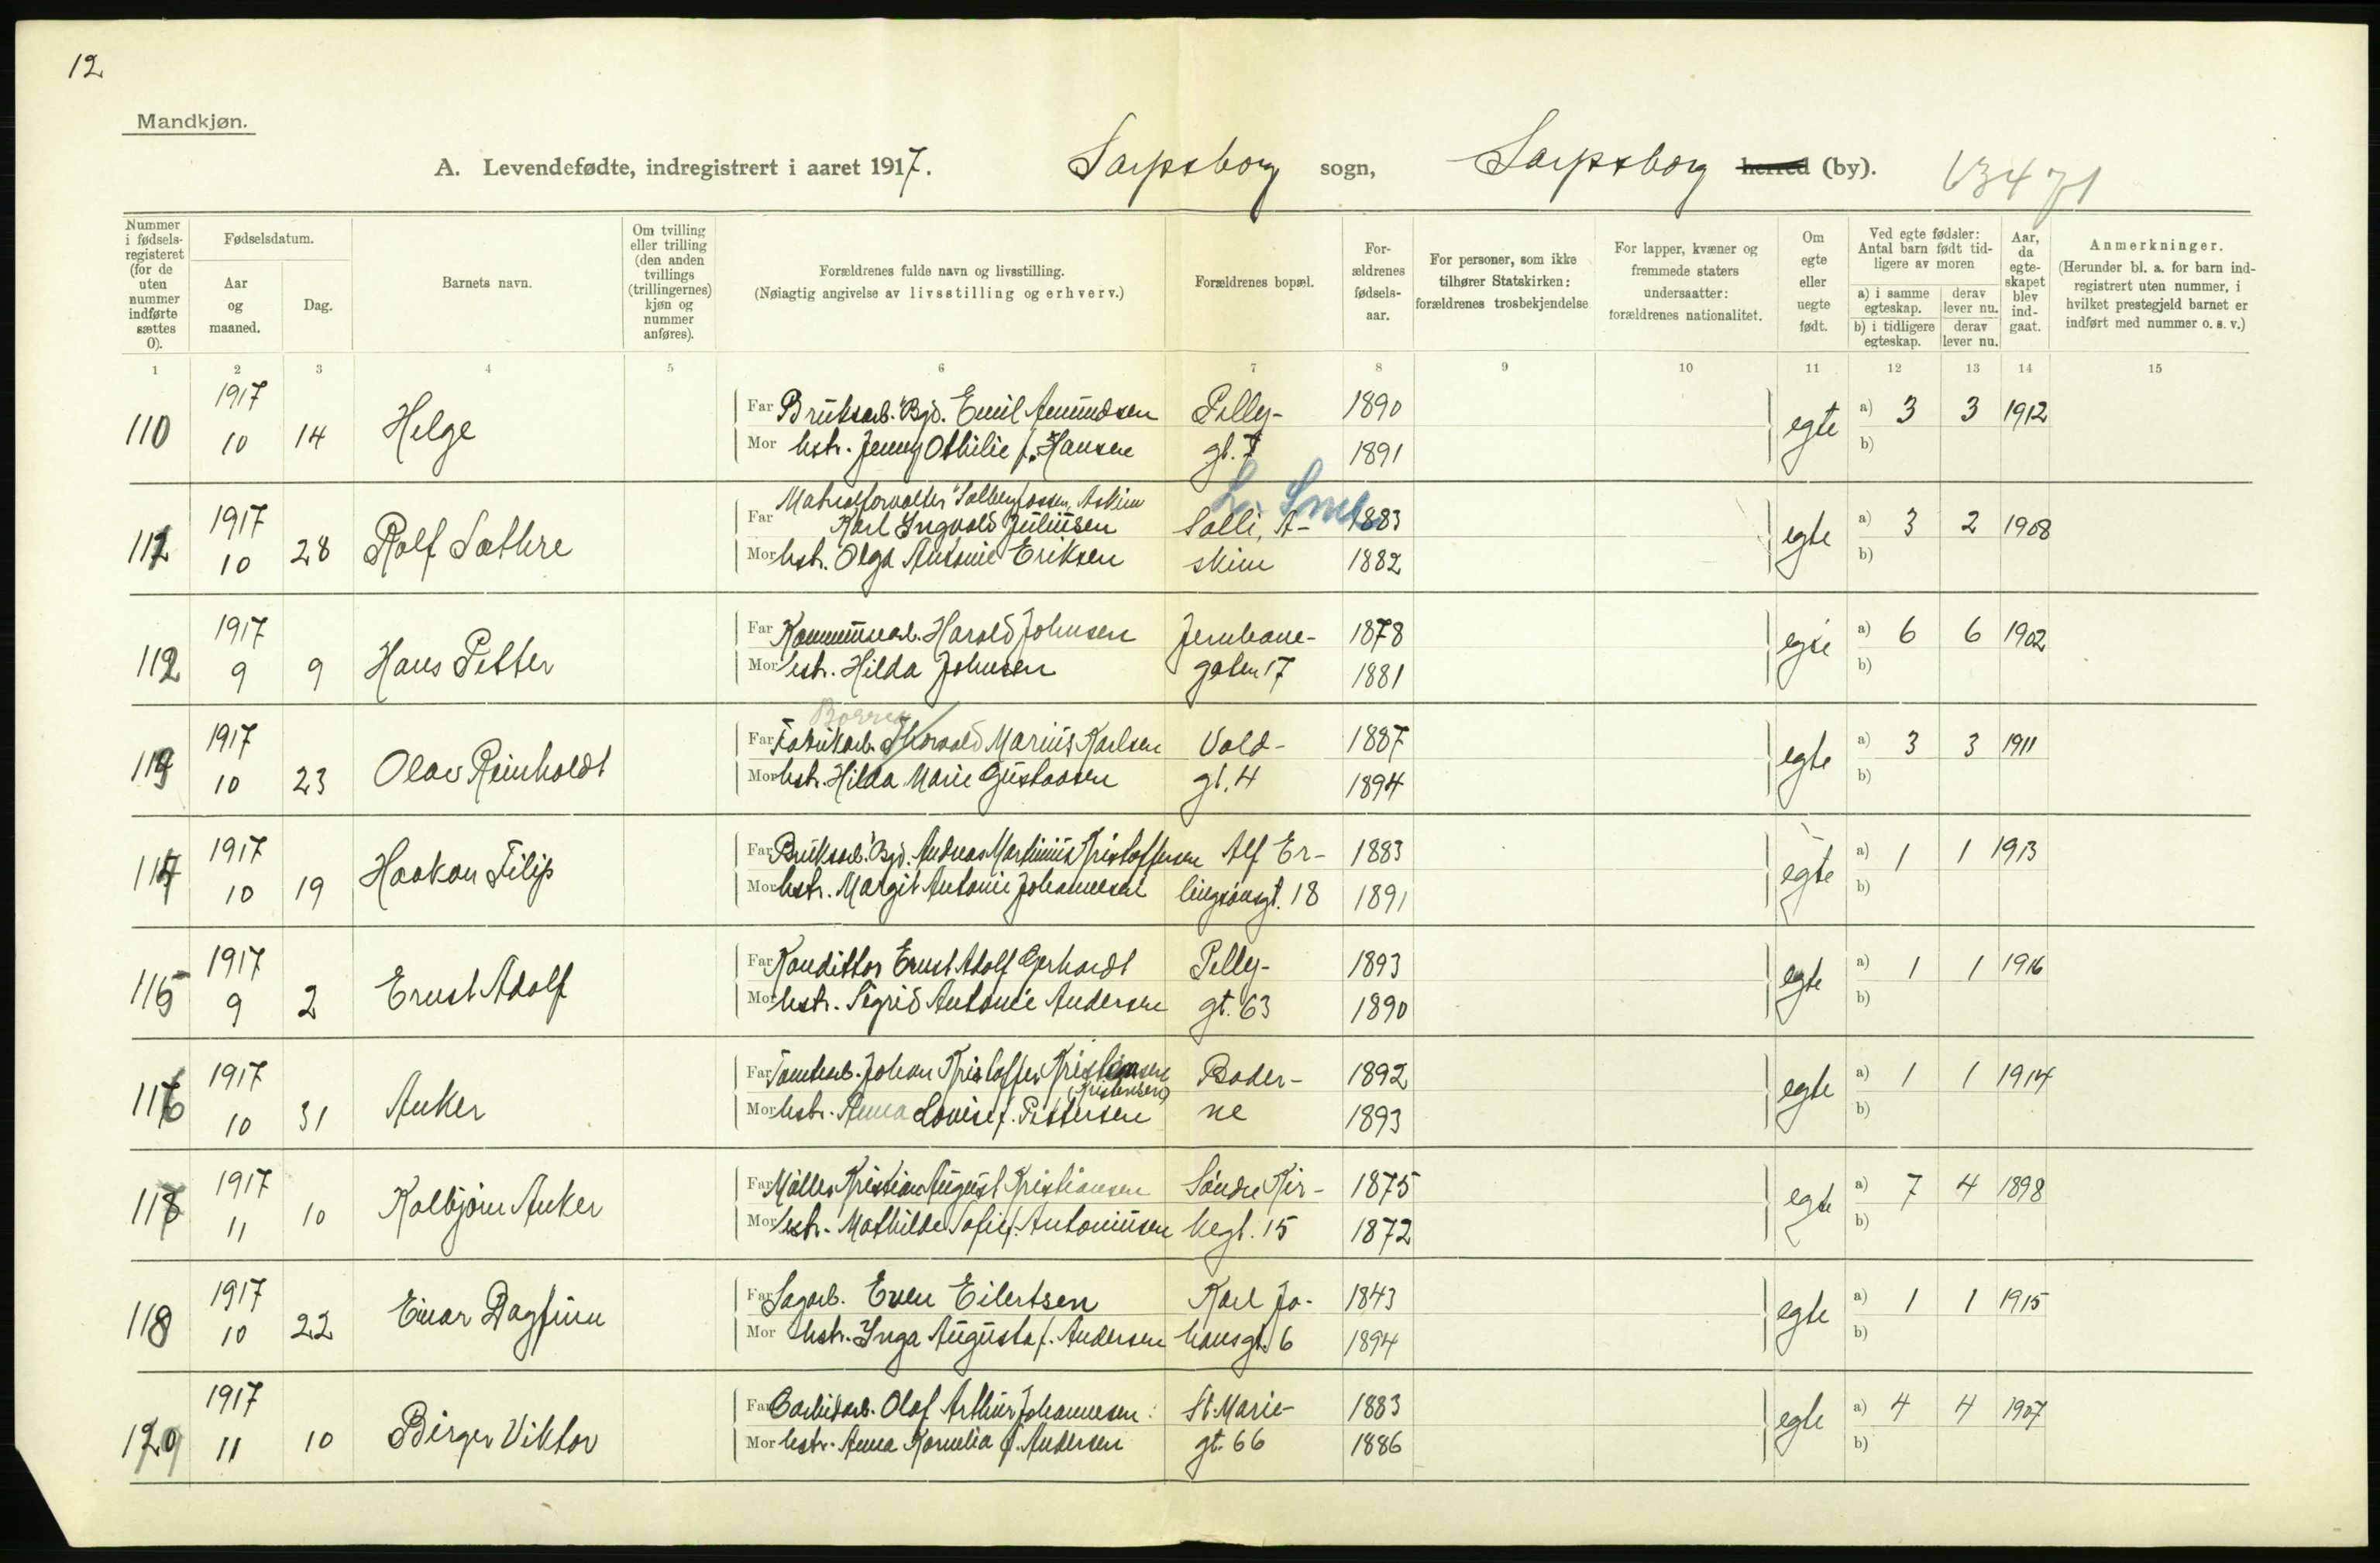 12
Mandkjøn.
A. Levendefødte, indregistrert i aaret 1917. Sarpsborg sogn, Sarpsborg herred (by).
Nummer i fødsels-registeret (for de uten nummer indførte sættes 0).
Fødselsdatum.
Aar og maaned.
Dag.
Barnets navn.
Om tvilling eller trilling (den anden tvillings (trillingernes) kjøn og nummer anføres).
Forældrenes fulde navn og livsstilling.
(Nøiagtig angivelse av livsstilling og erhverv.)
Forældrenes bopæl.
For-ældrenes fødsels-aar.
For personer, som ikke tilhører Statskirken: forældrenes trosbekjendelse
For lapper, kvæner og fremmede staters undersaatter: forældrenes nationalitet.
Om egte eller uegte født.
Ved egte fødsler: Antal barn født tid-ligere av moren
a) i samme egteskap. derav lever nu.
b) i tidligere egteskap. derav lever nu.
Aar, da egte-skapet blev ind-gaat.
Anmerkninger.
(Herunder bl. a. for barn ind-registrert uten nummer, i hvilket prestegjeld barnet er indført med nummer o. s. v.)
1 2 3 4 5 6 7 8 9 10 11 12 13 14 15
1917 Far Bruksarb. Bgd. Emil Amundsen Pelly- 1890 a) 3 3 1912
110 10 14 Helge Mor hstr. Jenny Othilie f. Hansen gt. 7 1891 egte b)
Matrialforvalter Solbergfossen, Askim
1917 Far Karl Ingvald Juliusen Solli, A- 1883 a) 3 2 1908
10 28 Rolf Sæthre Mor hstr. Olga Antonie Eriksen skim 1882 egte b)
1917 Far Kommunearb. Harald Johnsen Jernbane- 1878 a) 6 6 1902
112 9 9 Hans Petter Mor hstr. Hilda Johnsen gaten 17 1881 egte b)
Borreg
1917 Far Fabrikarb. Thorvald Marius Karlsen Vold- 1887 a) 3 3 1911
10 23 Olav Reinholdt Mor hstr. Hilda Marie Gustavsen gt. 4 1894 egte b)
1917 Far Bruksarb. Bgd. Andreas Martinius Kristoffersen Alf Er- 1883 a) 1 1 1913
10 19 Haakon Filip Mor hstr. Margit Antonie Johannesen lingsønsgt. 18 1891 egte b)
1917 Far Konditor Ernst Adolf Gerhardt Pelly- 1893 a) 1 1 1916
115 9 2 Ernst Adolf Mor hstr. Sigrid Antonie Andersen gt. 63 1890 egte b)
1917 Far Tomtearb. Johan Kristoffer Kristiansen Boder- 1892 a) 1 1 1914
(Kristensen)
116 10 31 Anker Mor hstr. Anna Lovise f. Pettersen ne 1893 egte b)
1917 Far Møller Kristian August Kristiansen Søndre Kir- 1875 a) 7 4 1898
11 10 Kolbjørn Anker Mor hstr. Mathilde Sofie f. Antoniusen kegt. 15 1872 egte b)
1917 Far Sagarb. Even Eilertsen Karl Jo- 1843 a) 1 1 1915
118 10 22 Einar Dagfinn Mor hstr. Inga Augusta f. Andersen hansgt. 6 1894 egte b)
1917 Far Carbidarb. Olaf Arthur Johannesen St. Marie- 1883 a) 4 4 1907
11 10 Birger Viktor Mor hstr. Anna Kornelia f. Andersen gt. 66 1886 egte b)